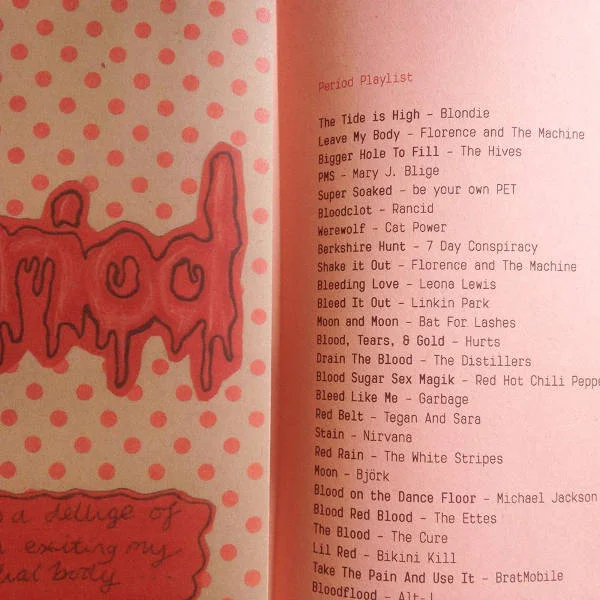 riod
a deluge of
exiting my
body
Period Playlist
The Tide is High – Blondie
Leave My Body – Florence and The Machine
Bigger Hole To Fill – The Hives
PMS – Mary J. Blige
Super Soaked – be your own PET
Bloodclot – Rancid
Werewolf – Cat Power
Berkshire Hunt – 7 Day Conspiracy
Shake it Out – Florence and The Machine
Bleeding Love – Leona Lewis
Bleed It Out – Linkin Park
Moon and Moon – Bat For Lashes
Blood, Tears, & Gold – Hurts
Drain The Blood – The Distillers
Blood Sugar Sex Magik – Red Hot Chili Peppe
Bleed Like Me – Garbage
Red Belt – Tegan And Sara
Stain – Nirvana
Red Rain – The White Stripes
Moon – Björk
Blood on the Dance Floor – Michael Jackson
Blood Red Blood – The Ettes
The Blood – The Cure
Lil Red – Bikini Kill
Take The Pain And Use It – BratMobile
Bloodflood – Alt-J